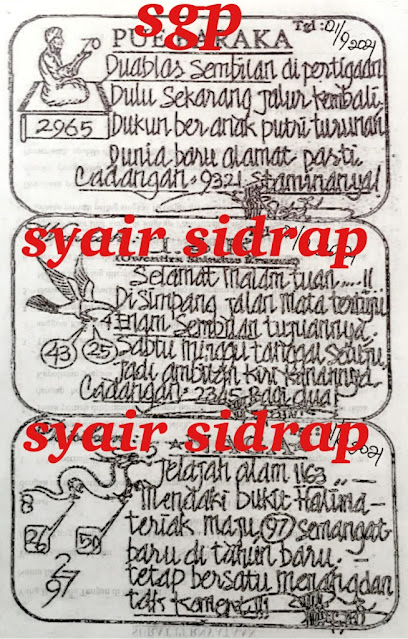 sgp
Tgl: 01/9 2021
PUE BARAKA
Duablas Sembilan di pertigaan
Dulu Sekarang jalur kembali
2965
Dukun ber anak putri turunan
Dunia baru alamat pasti
Cadangan: 9321 staminanya!
syair sidrap
Selamat malam tuan....!!
Di Simpang jalan mata tertuju
4 Enam Sembilan tujuannya
43 25
Sabtu minggu tanggal satu
Jadi ambillah kiri kanannya
Cadangan: 2345 Bagi dua
syair sidrap
2021
Jelajah alam 1163
Mendaki bukit Hakuna
teriak maju (97) semangat
26 50
baru di tahun baru.
2
97
tetap bersatu menang dan
tak